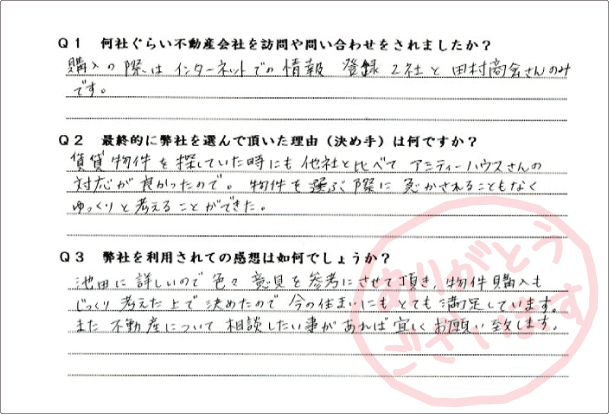 Q1 何社ぐらい不動産会社を訪問や問い合わせをされましたか?
購入の際はインターネットでの情報 登録2社と田村商会さんのみ
です。
Q2 最終的に弊社を選んで頂いた理由(決め手)は何ですか?
賃貸物件を探していた時にも他社と比べてアミティーハウスさんの
対応が良かったので。物件を選ぶ際に急かされることもなく
ゆっくりと考えることができた。
Q3 弊社を利用されての感想は如何でしょうか?
池田に詳しいので色々意見を参考にさせて頂き、物件購入も
じっくり考えた上で決めたので今の住まいにもとても満足しています。
また不動産について相談したい事があれば宜しくお願い致します。
ありがとう
ございます